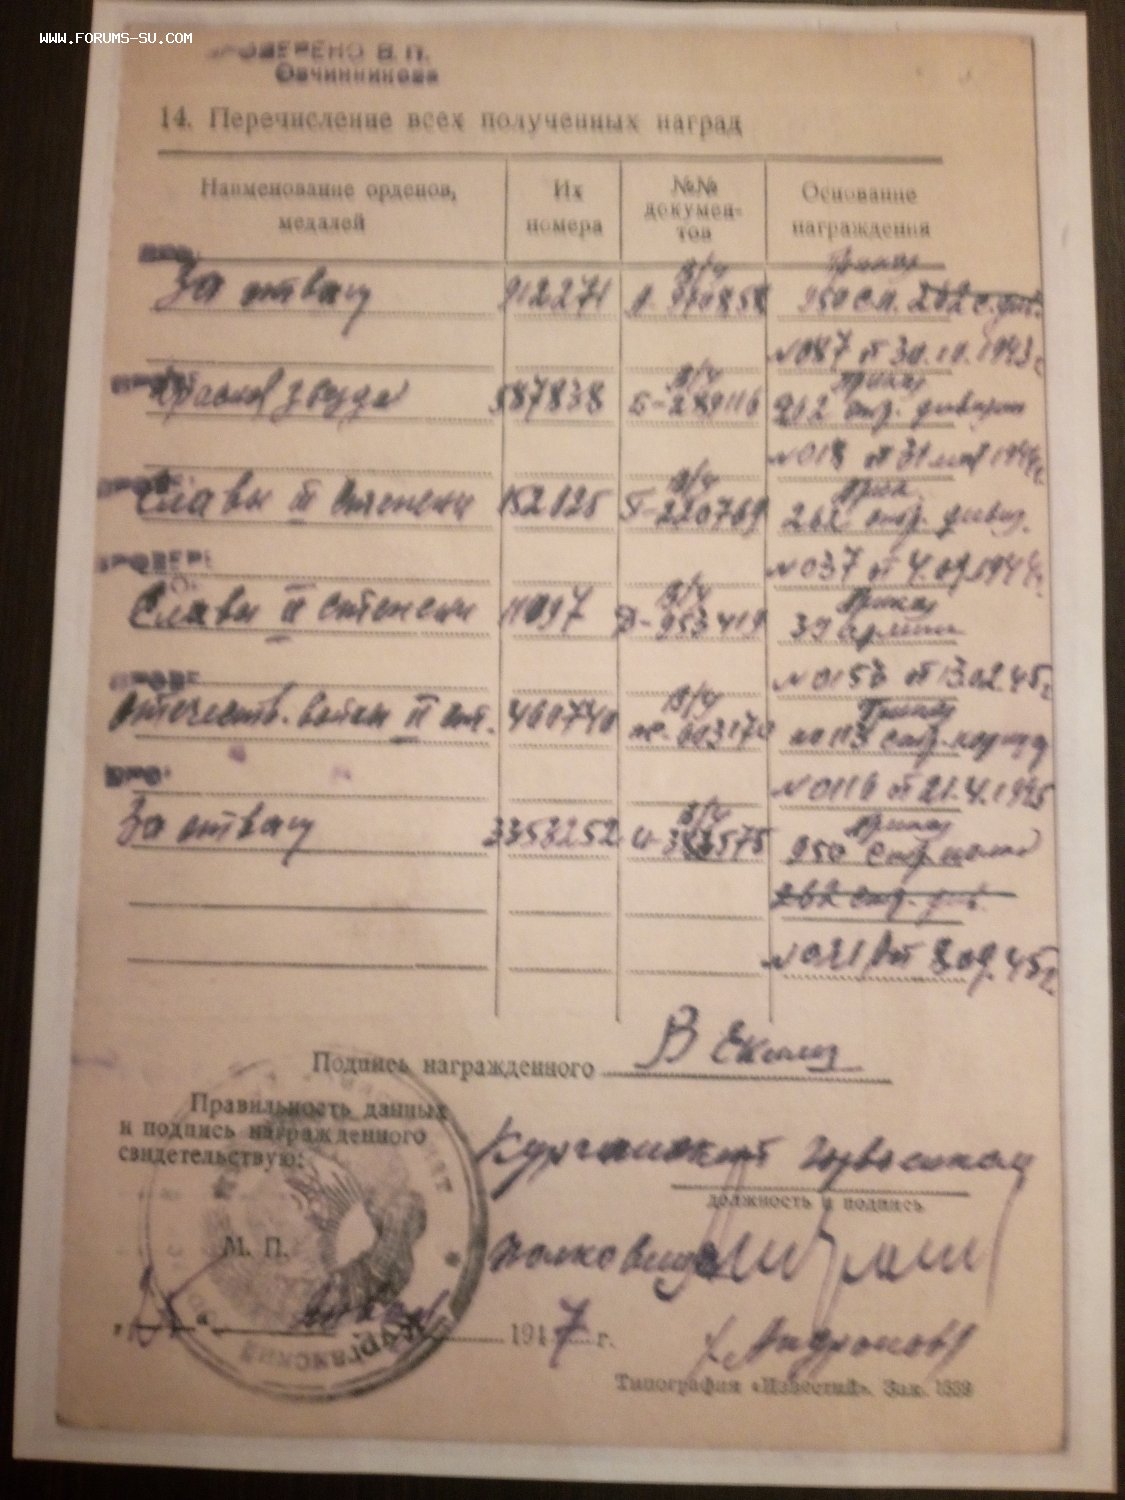 WWW.FORUMS-SU.COM
ПРОВЕРЕНО В. П.
Овчинникова
14. Перечисление всех полученных наград
Наименование орденов, медалей
Их номера
№№ докумен-тов
Основание награждения
За отвагу 912271 в/ч 970858 Приказ 950 с.п. 262 с. див.
№ 087 от 30.10.1943г
Красной звезда 587838 в/ч Б-289116 Приказ 262 стр. дивизии
№ 018 от 31 мая 1944г.
Славы III степени 152825 в/ч Г-220769 Приказ 262 стр. дивиз.
ПРОВЕРЕ
№ 037 от 4.09.1944г.
Славы II степени 11097 в/ч Д-953419 Приказ 39 армии
№ 0153 от 13.02.45г
Отечеств. войны II ст. 460740 в/ч Приказ 113 стр. корпуса
№ 0116 от 21.4.1945
За отвагу 3353252 в/ч Приказ 950 стр полка
262 стр. див.
от 8.09.45г.
Подпись награжденного
Правильность данных
и подпись награжденного
свидетельствую:
Курганский горвоенком
должность и подпись
М. П.
Полковник
1947 г.
Типография «Известий». Зак. 1339